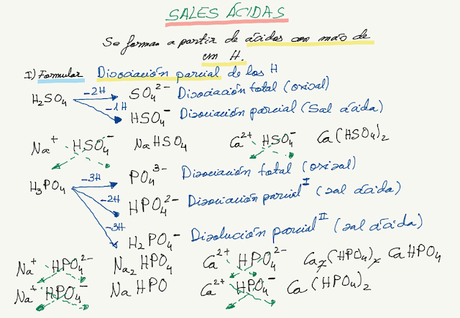 SALES ÁCIDAS
Se forman a partir de ácidos con más de
un H.
I) Formular Disociación parcial de los H
H₂SO₄ -2H SO₄²⁻ Disociación total (oxisal)
-1H HSO₄⁻ Disociación parcial (Sal ácida)
Na⁺ HSO₄⁻ NaHSO₄ Ca²⁺ HSO₄⁻ Ca(HSO₄)₂
H₃PO₄ -3H PO₄³⁻ Disociación total (oxisal)
-2H HPO₄²⁻ Disociación parcial I (sal ácida)
-3H H₂PO₄⁻ Disolución parcial II (sal ácida)
Na⁺ HPO₄²⁻ Na₂HPO₄ Ca²⁺ HPO₄²⁻ Ca₂(HPO₄)₂ CaHPO₄
Na⁺ HPO₄⁻ NaHPO Ca²⁺ HPO₄⁻ Ca(HPO₄)₂